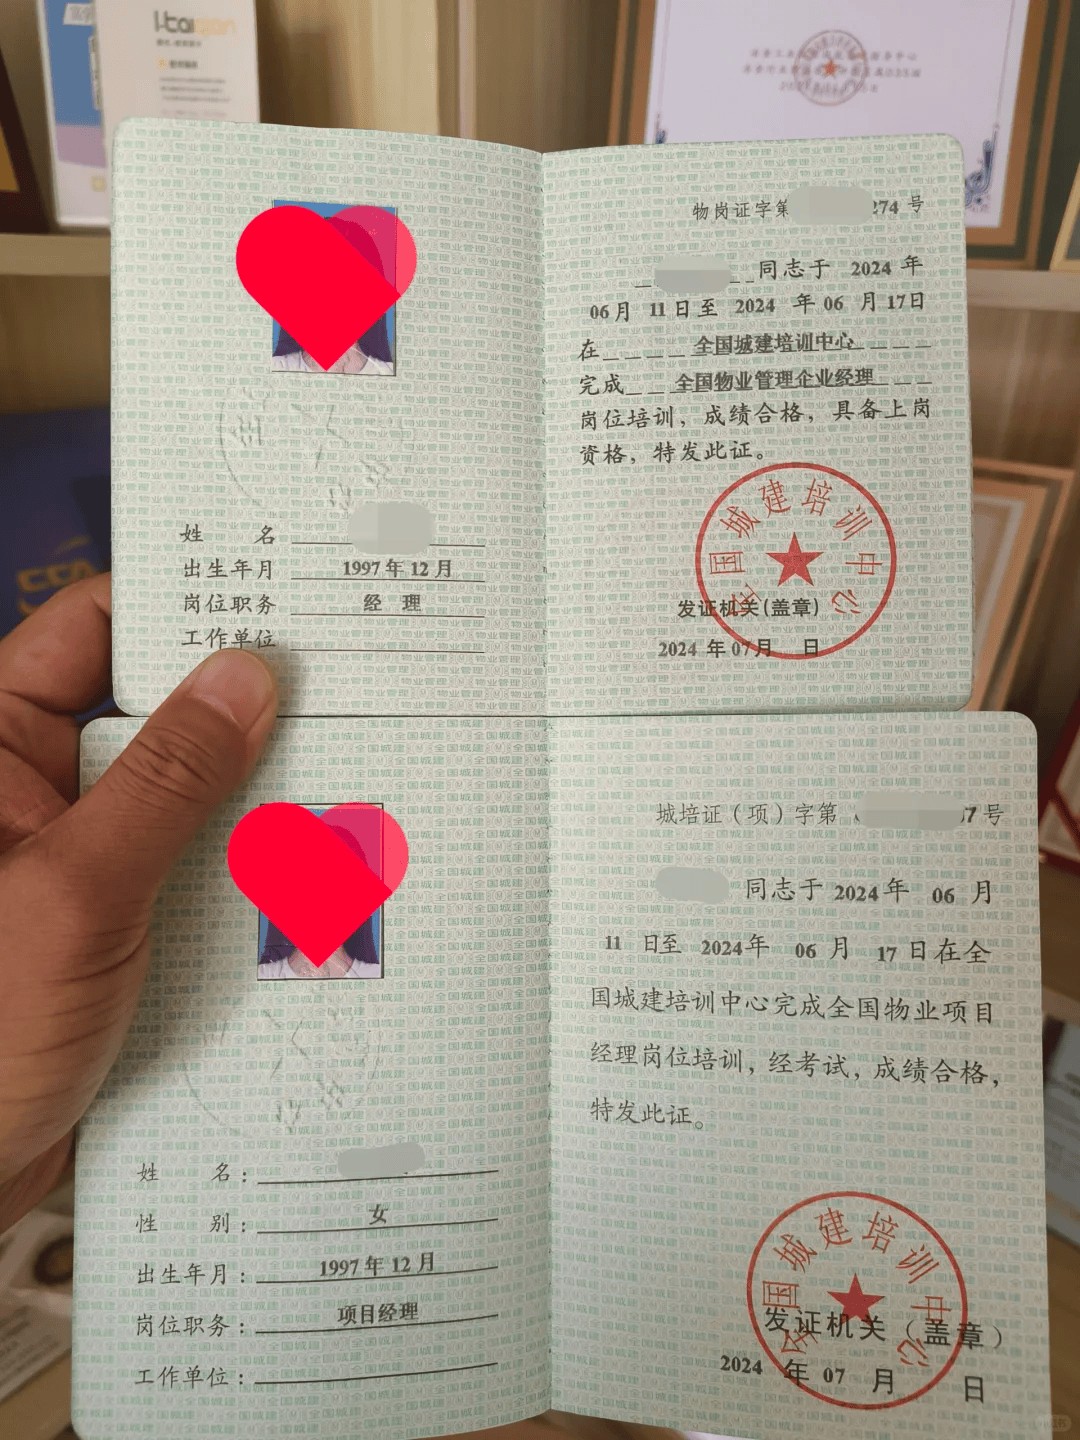 物岗证字第 274 号
同志于 2024 年
06 月 11 日至 2024 年 06 月 17 日
在 全国城建培训中心
完成 全国物业管理企业经理
岗位培训，成绩合格，具备上岗
资格，特发此证。
全国城建培训中心
发证机关(盖章)
2024 年 07 月 日
姓 名
出生年月 1997 年 12 月
岗位职务 经 理
工作单位
城培证（项）字第 7 号
同志于 2024 年 06 月
11 日至 2024 年 06 月 17 日在全
国城建培训中心完成全国物业项目
经理岗位培训，经考试，成绩合格，
特发此证。
全国城建培训中心
发证机关（盖章）
2024 年 07 月 日
姓 名：
性 别： 女
出生年月： 1997 年 12 月
岗位职务： 项目经理
工作单位：